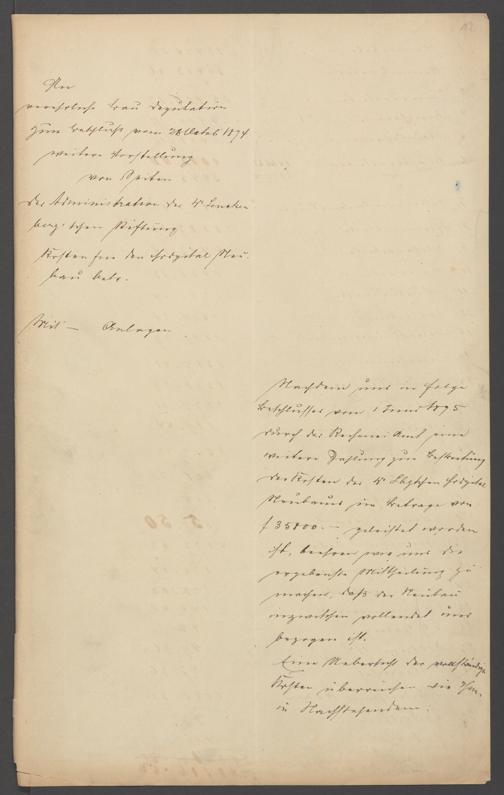 12
An
verehrliche Bau Deputation
zum Beschluss vom 28 Octob. 1874
weitere Vorstellung
von Seiten
der Administration der Dr Sencken
berg'schen Stiftung
Kosten für den Hospital Neu-
bau betr.
Mit — Anlagen
Nachdem uns in Folge
Beschlusses vom 1 Juni 1875
durch das Rechnei Amt eine
weitere Zahlung zur Bestreitung
der Kosten des Dr Sbgschen Hospital
Neubaues im Betrage von
f 35000.— geleistet worden
ist, beehren wir uns die
ergebenste Mittheilung zu
machen, daß der Neubau
inzwischen vollendet und
bezogen ist.
Eine Uebersicht der vollständigen
Kosten überreichen wir Ihnen
in Nachstehendem.